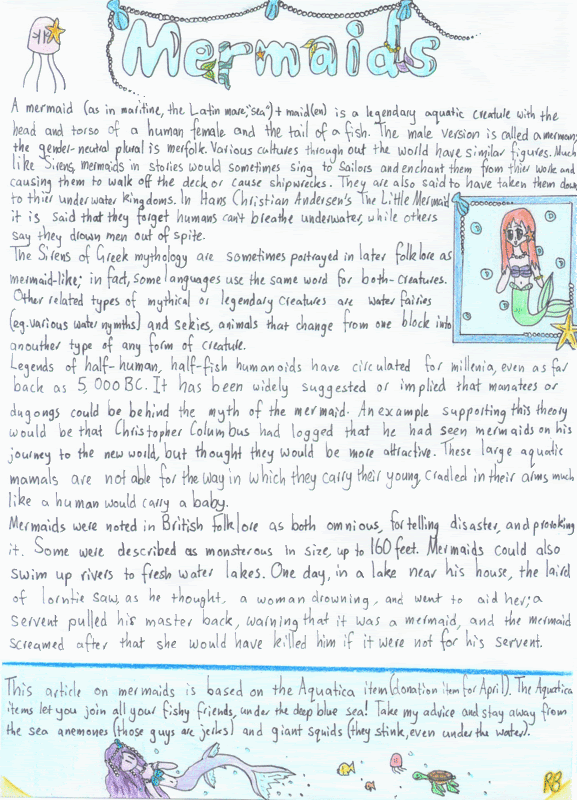 Mermaids
A mermaid (as in maritine, the Latin mare,"sea") + maid(en) is a legendary aquatic creature with the
head and torso of a human female and the tail of a fish. The male version is called a merman;
the gender-neutral plural is merfolk. Various cultures through out the world have similar figures. Much
like Sirens, mermaids in stories would sometimes sing to Sailors and enchant them from thier work and
causing them to walk off the deck or cause shipwrecks. They are also said to have taken them down
to thier underwater kingdoms. In Hans Christian Andersen's The Little Mermaid
it is said that they forget humans can't breathe underwater, while others
say they drown men out of spite.
The Sirens of Greek mythology are sometimes portrayed in later folklore as
mermaid-like; in fact, some languages use the same word for both creatures.
Other related types of mythical or legendary creatures are water fairies
(eg. various water nymths) and selkies, animals that change from one block into
anouther type of any form of creature.
Legends of half-human, half-fish humanoids have circulated for millenia, even as far
back as 5,000 BC. It has been widely suggested or implied that manatees or
dugongs could be behind the myth of the mermaid. An example supporting this theory
would be that Christopher Columbus had logged that he had seen mermaids on his
journey to the new world, but thought they would be more attractive. These large aquatic
mamals are not able for the way in which they carry their young, cradled in their arms much
like a human would carry a baby.
Mermaids were noted in British folklore as both omnious, fortelling disaster, and provoking
it. Some were described as monsterous in size, up to 160 feet. Mermaids could also
swim up rivers to fresh water lakes. One day, in a lake near his house, the laird
of lorntie saw, as he thought, a woman drowning, and went to aid her; a
servent pulled his master back, warning that it was a mermaid, and the mermaid
screamed after that she would have killed him if it were not for his servent.
This article on mermaids is based on the Aquatica item (donation item for April). The Aquatica
items let you join all your fishy friends, under the deep blue sea! Take my advice and stay away from
the sea anemones (those guys are jerks) and giant squids (they stink, even under the water).
RB